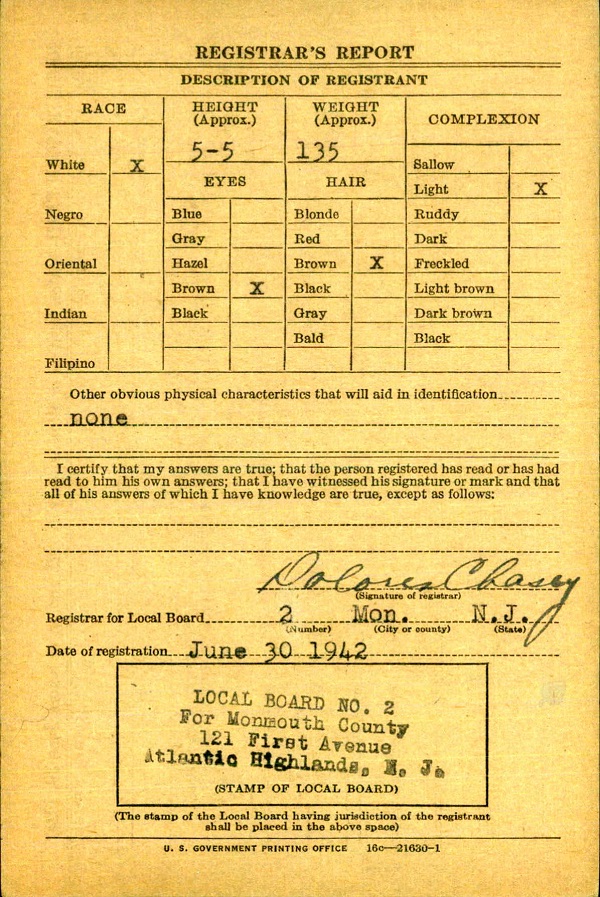 REGISTRAR'S REPORT
DESCRIPTION OF REGISTRANT
RACE
HEIGHT
(Approx.)
WEIGHT
(Approx.)
COMPLEXION
5-5
135
White X
Sallow
EYES
HAIR
Light X
Negro
Blue
Blonde
Ruddy
Gray
Red
Dark
Oriental
Hazel
Brown X
Freckled
Brown X
Black
Light brown
Indian
Black
Gray
Dark brown
Bald
Black
Filipino
Other obvious physical characteristics that will aid in identification
none
I certify that my answers are true; that the person registered has read or has had
read to him his own answers; that I have witnessed his signature or mark and that
all of his answers of which I have knowledge are true, except as follows:
Dolores Chasey
(Signature of registrar)
Registrar for Local Board 2 Mon. N.J.
(Number) (City or county) (State)
Date of registration June 30 1942
LOCAL BOARD NO. 2
For Monmouth County
121 First Avenue
Atlantic Highlands, N. J.
(STAMP OF LOCAL BOARD)
(The stamp of the Local Board having jurisdiction of the registrant
shall be placed in the above space)
U. S. GOVERNMENT PRINTING OFFICE 16c—21630-1